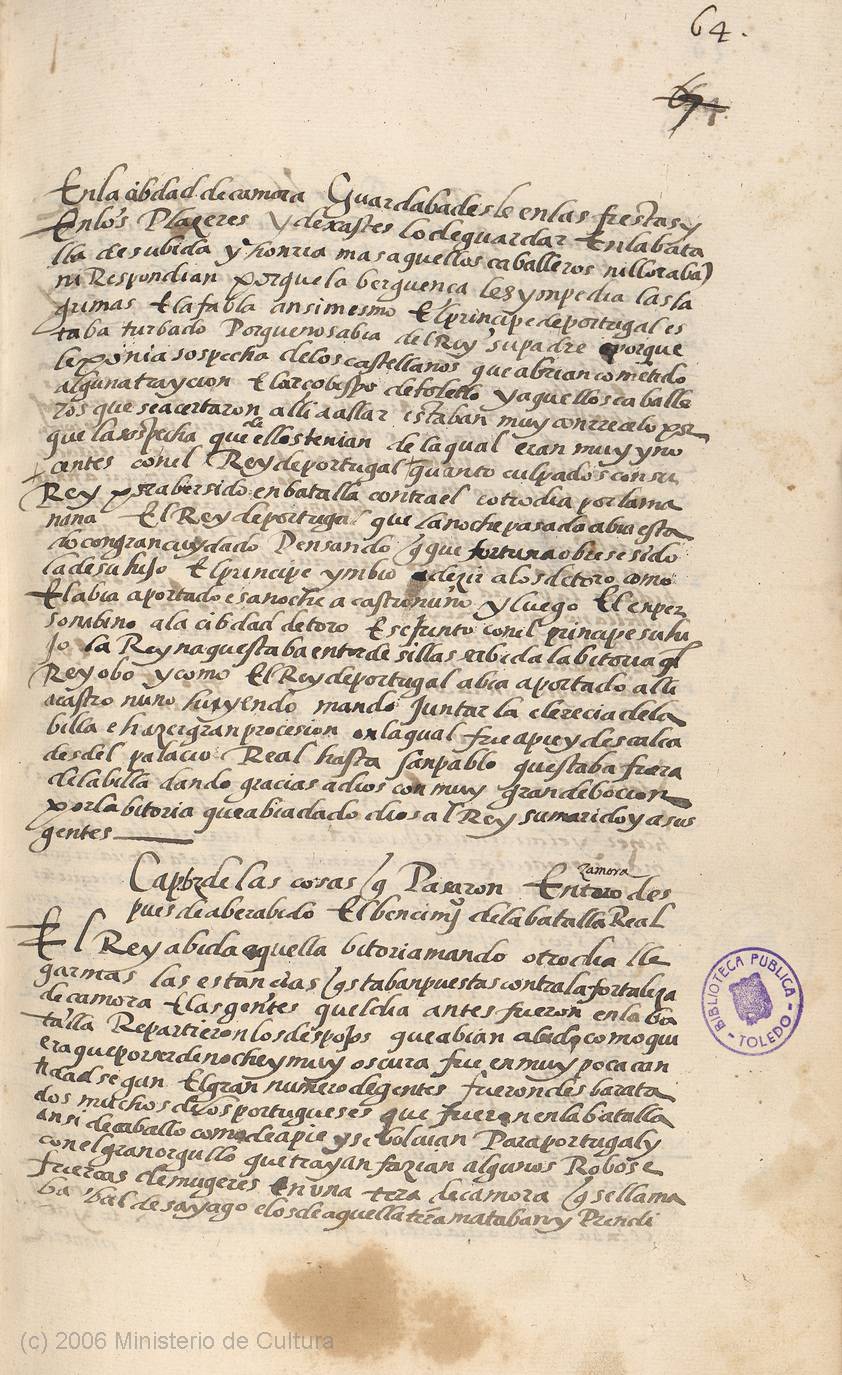 64.
En la cibdad de camora Guardabades le en las fiestas y
En los Plazeres y dexastes lo de guardar En la bata
lla de su bida y honrra mas aquellos caballeros ni lloraba)
ni Respondian porque la berguenca les ympedia las la
grimas E la fabla ansimesmo El principe de portugal es
taba turbado Porque no sabia del Rey su padre e porque
le ponia sospecha de los castellanos que abrian cometido
alguna traycion E l arcobispo de toledo y aquellos caballe
ros que se acertaron alli a allar estaban muy con recelo por
que la sospecha que de ellos tenian de la qual eran muy yno
centes con el Rey de portugal quanto culpados con su
Rey por aber sido en batalla contra el e otro dia por la ma
nana El Rey de portugal que la noche pasado abia esta
do con gran cuydado Pensando q que fortuna obiese sido
la de su hijo El principe ymbio a dezir a los de toro como
El abia aportado esa noche a castronuño y luego El en per
sona bino a la cibdad de toro E se junto con el principe su hi
jo la Reyna questaba en tordesillas sabida la bitoria ql
Rey obo y como El Rey de portugal abia aportado alli
a castro nuno huyendo mando Juntar la clerecia de la
billa e hazer gran procesion en la qual fue a pie y descalca
desdel palacio Real hasta san pablo questaba fuera
de la billa dando gracias a dios con muy gran debocion
por la bitoria que abia dado dios al Rey su marido y a sus
gentes
zamora
Capº de las cosas q Pasaron En toro des
pues de aber abido El bencimyº de la batalla Real
El Rey abida aquella bitoria mando otro dia lle
gar mas las estancias q staban puestas contra la fortaleza
de camora E las gentes quel dia antes fueron en la ba
talla Repartieron los despojos que abian abido como qui
era que por ser de noche y muy oscura fue en muy poca can
tidad segun El gran numero de gentes fueron desbarata
dos muchos de los portugueses que fueron en la batalla
ansi de caballo como de a pie y se bolvian Para portugal y
con el gran orgullo que trayan fazian algunos Robos e
fuercas de mugeres En una tera de camora q se llama
ba bal de sayago e los de aquella tera mataban y Prendi
BIBLIOTECA PUBLICA
- TOLEDO -
(c) 2006 Ministerio de Cultura